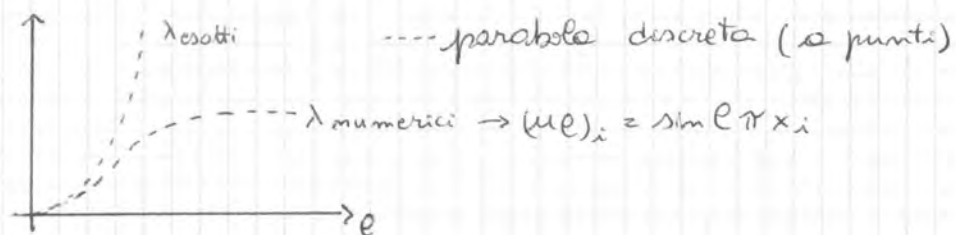 λ esatti ---- parabola discreta (a punti)
λ numerici → (uℓ)i = sin ℓ π xi
ℓ